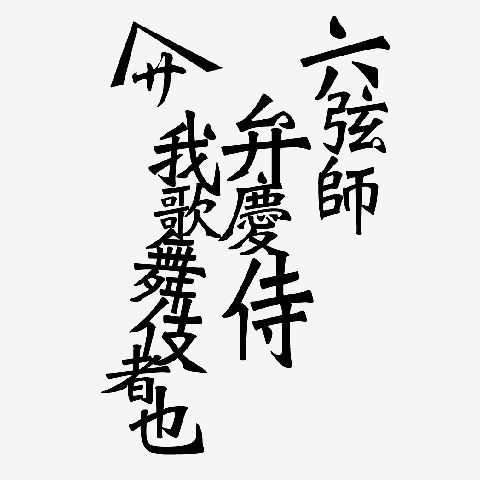 六弦師
弁慶侍
我歌舞伎者也
サ